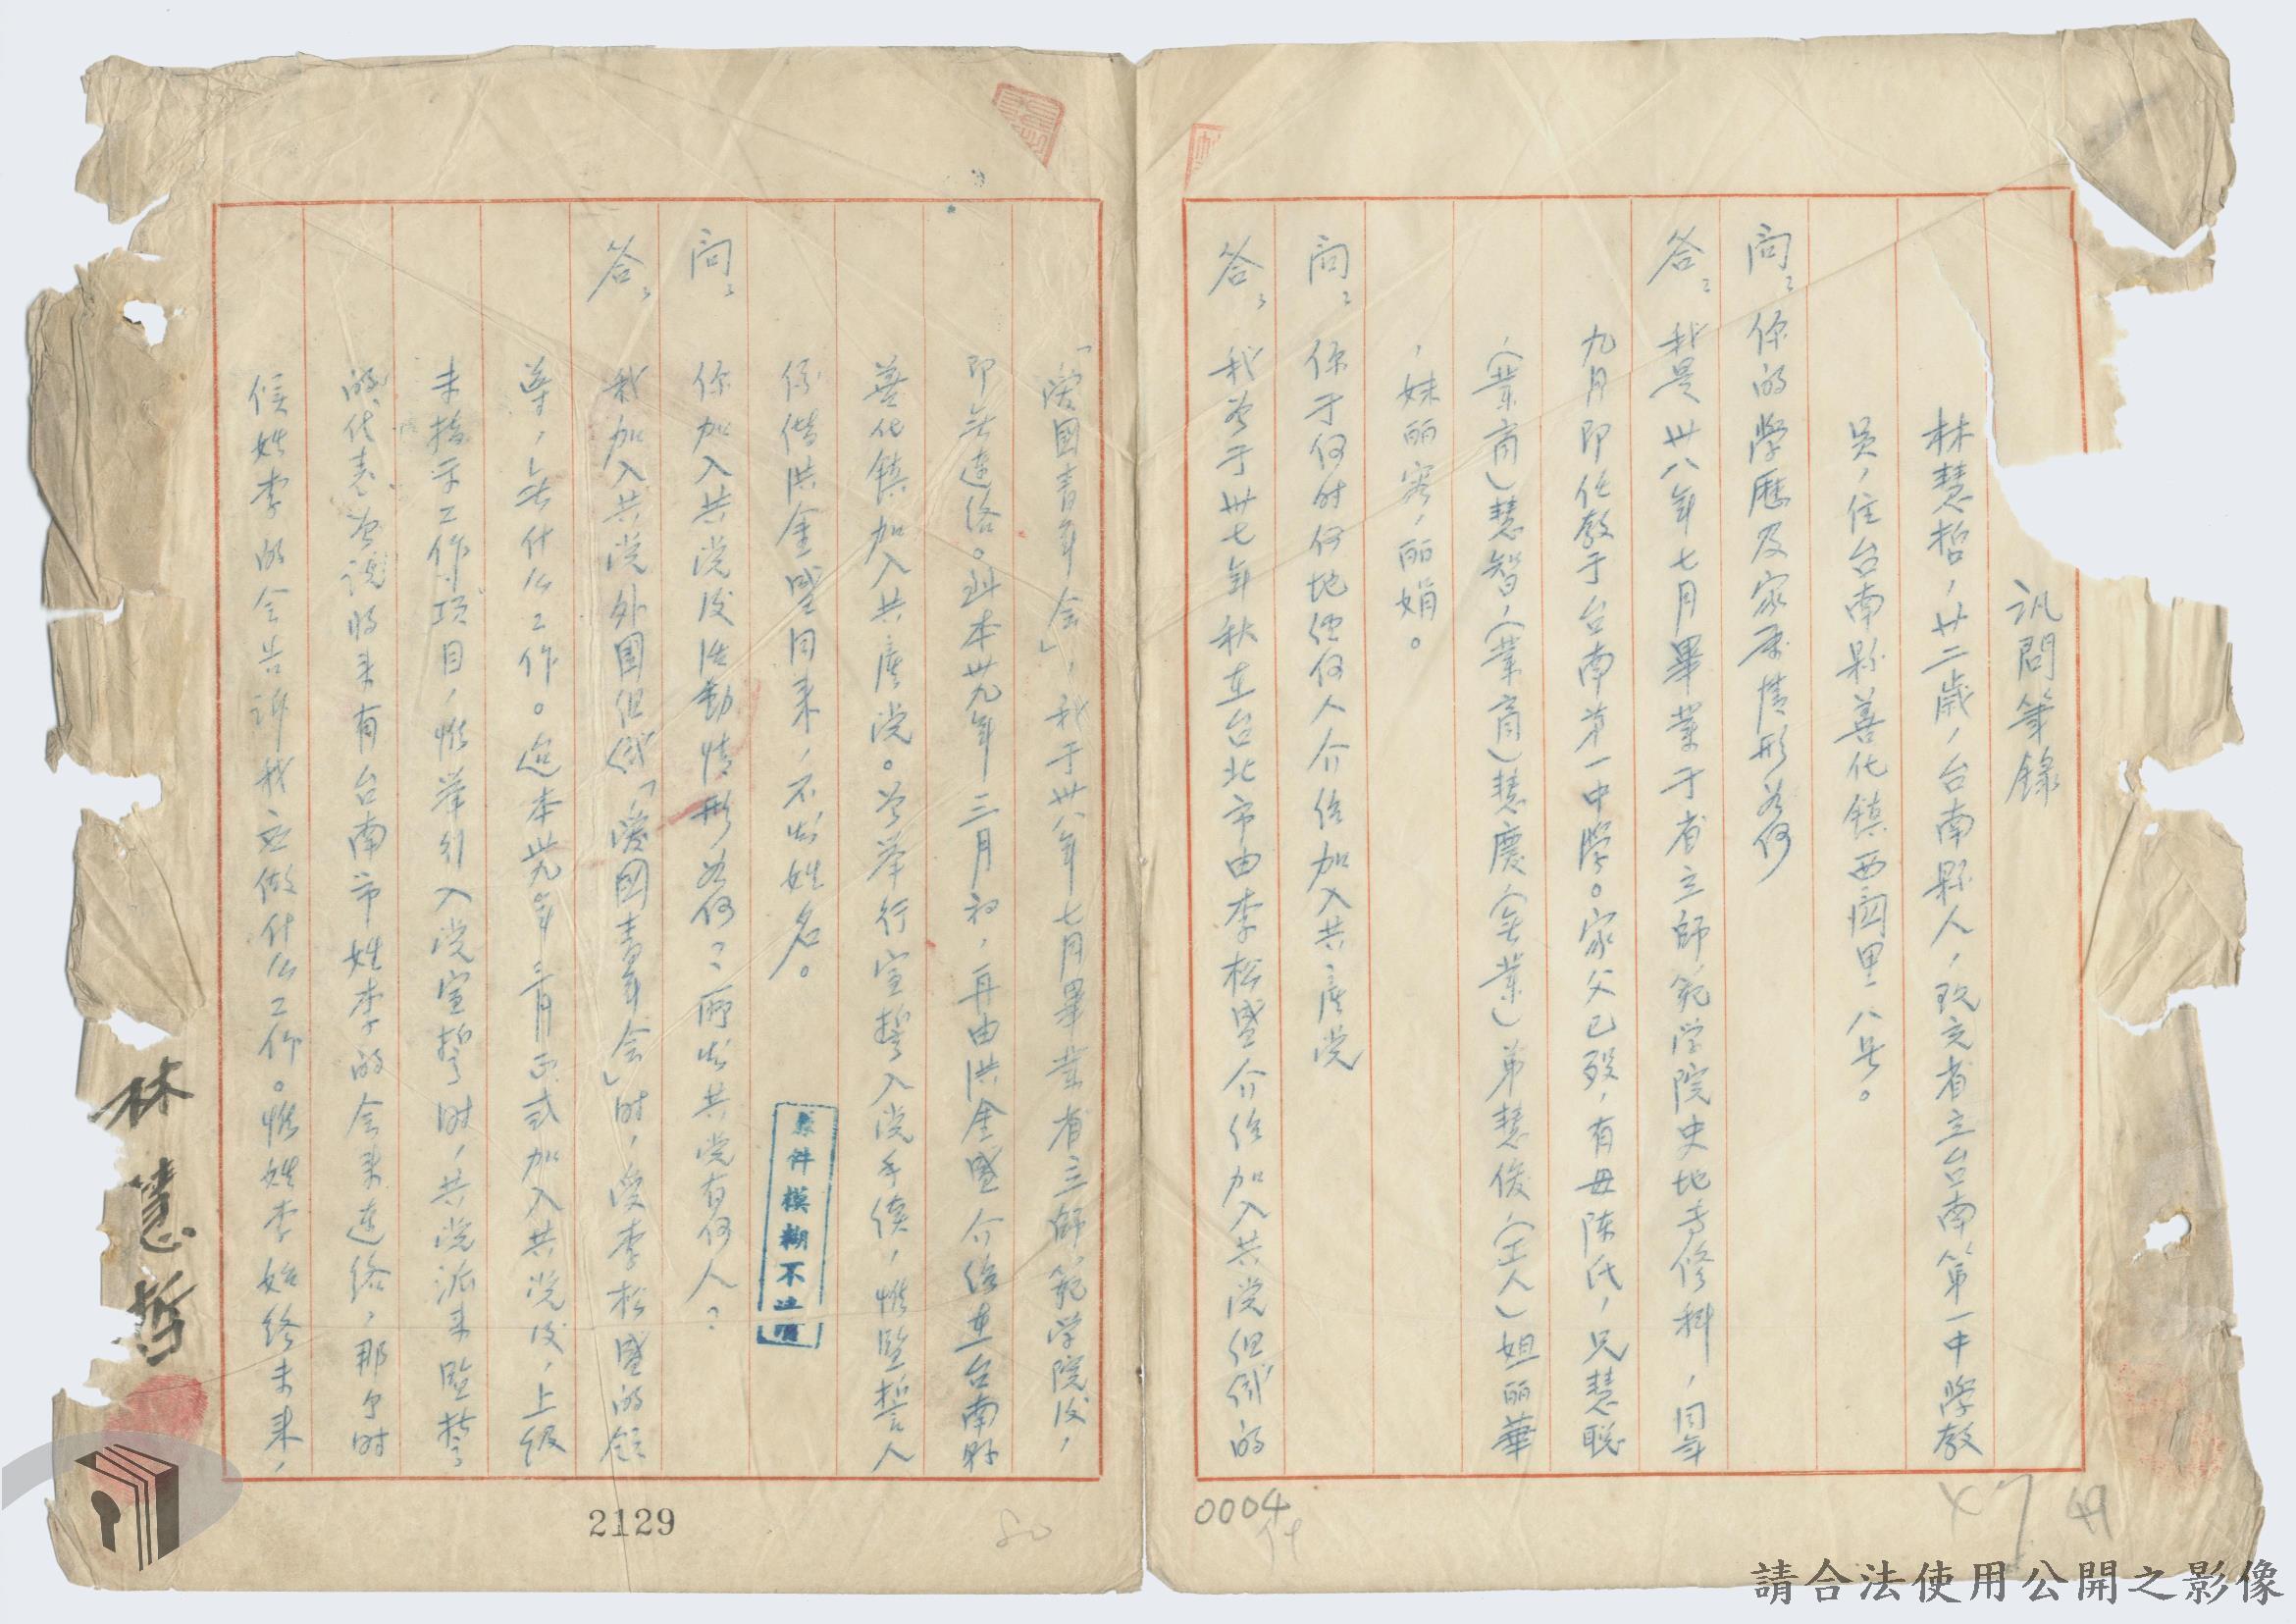 訊問筆錄
林慧哲，廿二歲，台南縣人，現充省立台南第一中學教
員，住台南縣善化鎮西関里八号。
問：你的學歷及家庭情形若何
答：我是卅八年七月畢業于省立師範学院史地专修科，同年
九月即任教于台南第一中學。家父已歿，有母陈氏，兄慧聪
（業商）慧智，（業商）慧慶（無業）弟慧俊，（工人）姐丽華
，妹丽容，丽娟。
問：你于何时何地經何人介绍加入共産党
答：我是于卅七年秋在台北市由李松盛介绍加入共党組織的
「愛國青年会」，我于卅八年七月畢業省立師範学院後，
即無連络。到本卅九年三月初，再由洪金盛介绍在台南縣
善化鎮加入共産党。曾举行宣誓入党手續，惟監誓人
係偕洪金盛同来，不悉姓名。
問：你加入共党後活動情形若何？所悉共党有何人？
答：我加入共党外圍組織「愛國青年会」时，受李松盛的領
導，無什么工作。迨本卅九年三月正式加入共党後，上級
未指示工作項目，惟举行入党宣誓时，共党派来監誓
的代表曾說將来有台南市姓李的会来連络，那个时
候姓李的会告訴我应做什么工作。惟姓李始終未来，
林慧哲
原件模糊不清
2129
80
0004
49
請合法使用公開之影像